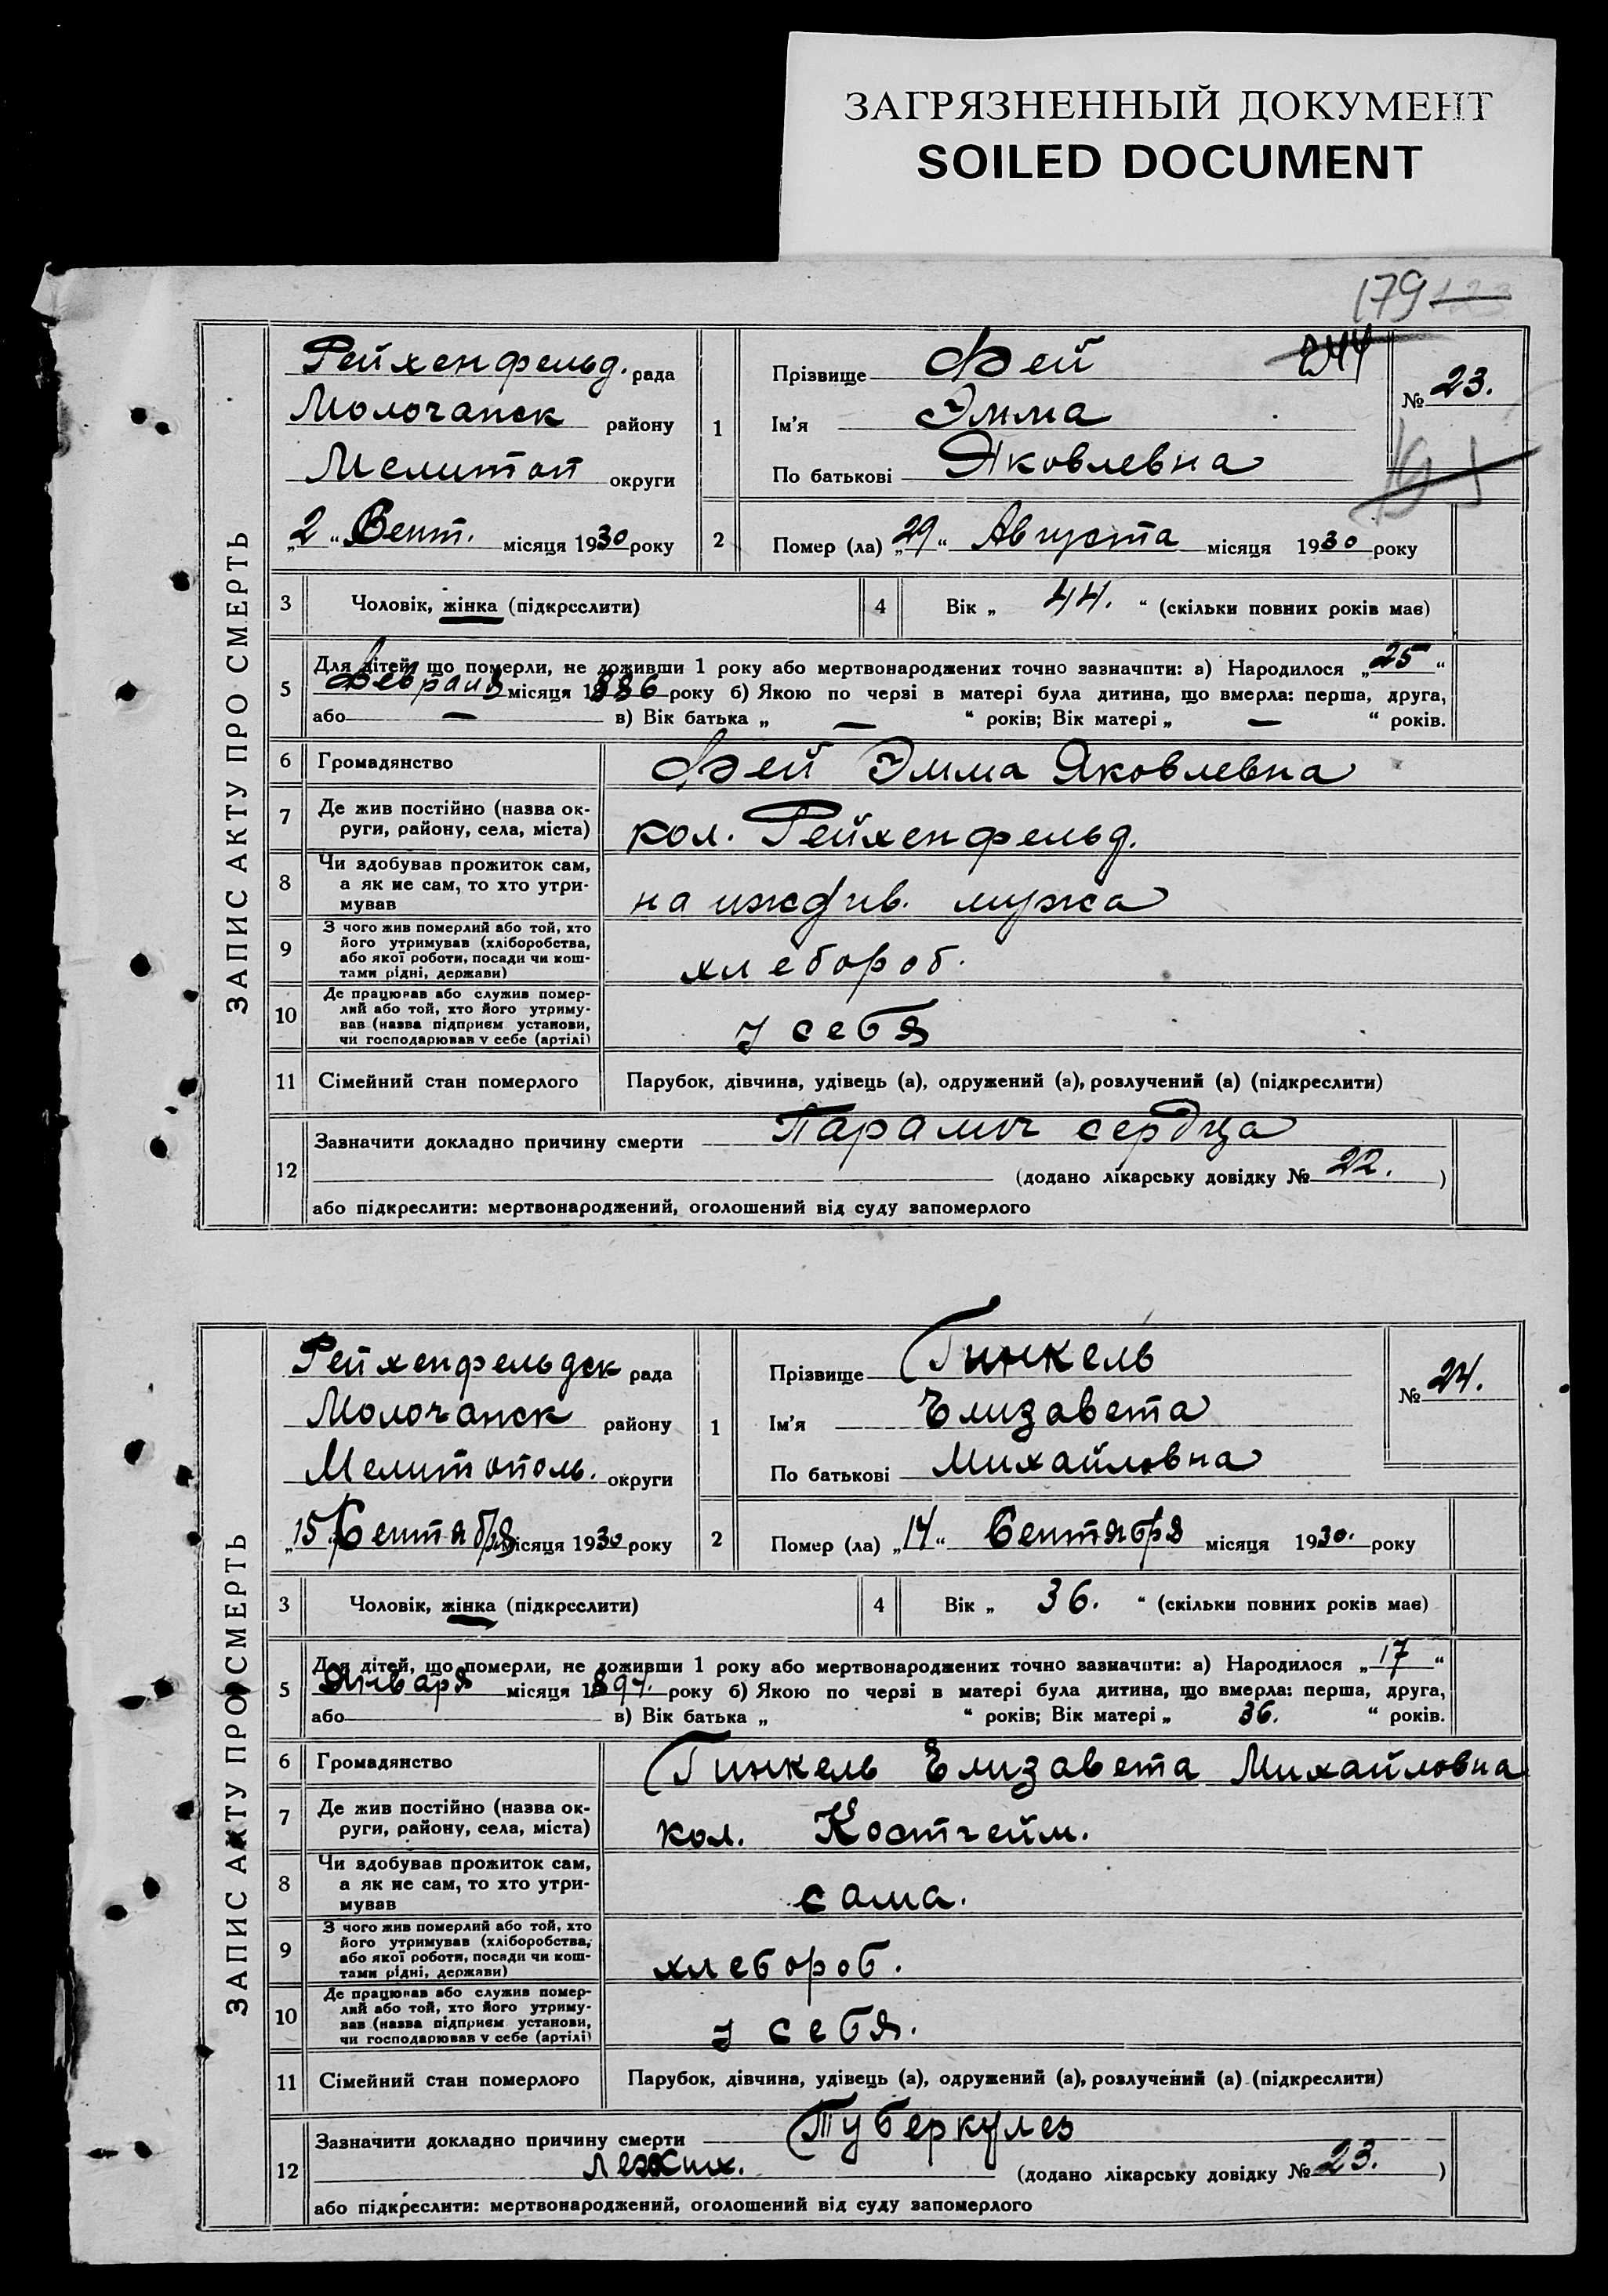 ЗАГРЯЗНЕННЫЙ ДОКУМЕНТ
SOILED DOCUMENT
179 123
ЗАПИС АКТУ ПРО СМЕРТЬ
Рейхенфельд. рада
Молочанск району
Мелитоп округи
„2“ Сент. місяця 1930 року
1
Прізвище Фей 244
Ім'я Эмма
По батькові Яковлевна
№ 23.
2 Помер (ла) „29“ Августа місяця 1930 року
3 Чоловік, жінка (підкреслити)
4 Вік „ 44. “ (скільки повних років має)
5 Для дітей, що померли, не доживши 1 року або мертвонароджених точно зазначити: а) Народилося „25“
Февраля місяця 1886 року б) Якою по черзі в матері була дитина, що вмерла: перша, друга,
або — в) Вік батька „ — “ років; Вік матері „ — “ років.
6 Громадянство Фей Эмма Яковлевна
7 Де жив постійно (назва ок-
руги, району, села, міста) кол. Рейхенфельд.
8 Чи здобував прожиток сам,
а як не сам, то хто утри-
мував на иждив. мужа
9 З чого жив померлий або той, хто
його утримував (хліборобства,
або якої роботи, посади чи кош-
тами рідні, держави) хлебороб.
10 Де працював або служив помер-
лий або той, хто його утриму-
вав (назва підприєм установи,
чи господарював у себе (артілі) у себя
11 Сімейний стан померлого Парубок, дівчина, удівець (а), одружений (а), розлучений (а) (підкреслити)
12 Зазначити докладно причину смерти Паралич сердца
(додано лікарську довідку № 22. )
або підкреслити: мертвонароджений, оголошений від суду запомерлого
ЗАПИС АКТУ ПРО СМЕРТЬ
Рейхенфельдск рада
Молочанск району
Мелитополь. округи
„15“ Сентября місяця 1930 року
1
Прізвище Гинкель
Ім'я Елизавета
По батькові Михайловна
№ 24.
2 Помер (ла) „14“ Сентября місяця 1930. року
3 Чоловік, жінка (підкреслити)
4 Вік „ 36. “ (скільки повних років має)
5 Для дітей, що померли, не доживши 1 року або мертвонароджених точно зазначити: а) Народилося „17“
Января місяця 1894. року б) Якою по черзі в матері була дитина, що вмерла: перша, друга,
або в) Вік батька „ “ років; Вік матері „ 36. “ років.
6 Громадянство Гинкель Елизавета Михайловна
7 Де жив постійно (назва ок-
руги, району, села, міста) кол. Костгейм.
8 Чи здобував прожиток сам,
а як не сам, то хто утри-
мував сама.
9 З чого жив померлий або той, хто
його утримував (хліборобства,
або якої роботи, посади чи кош-
тами рідні, держави) хлебороб.
10 Де працював або служив помер-
лий або той, хто його утриму-
вав (назва підприєм установи,
чи господарював у себе (артілі) у себя.
11 Сімейний стан померлого Парубок, дівчина, удівець (а), одружений (а), розлучений (а) (підкреслити)
12 Зазначити докладно причину смерти Туберкулез
легких. (додано лікарську довідку № 23. )
або підкреслити: мертвонароджений, оголошений від суду запомерлого